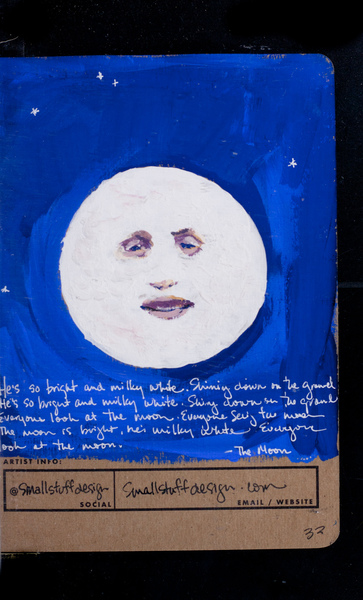 He's so bright and milky white. Shining down on the ground
He's so bright and milky white. Shing down on the ground
Everyone look at the moon. Everyone see the moon
The moon is bright, he's milky white. Everyone
look at the moon.
- The Moon
ARTIST INFO:
@smallstuffdesign
SOCIAL
smallstuffdesign.com
EMAIL / WEBSITE
32